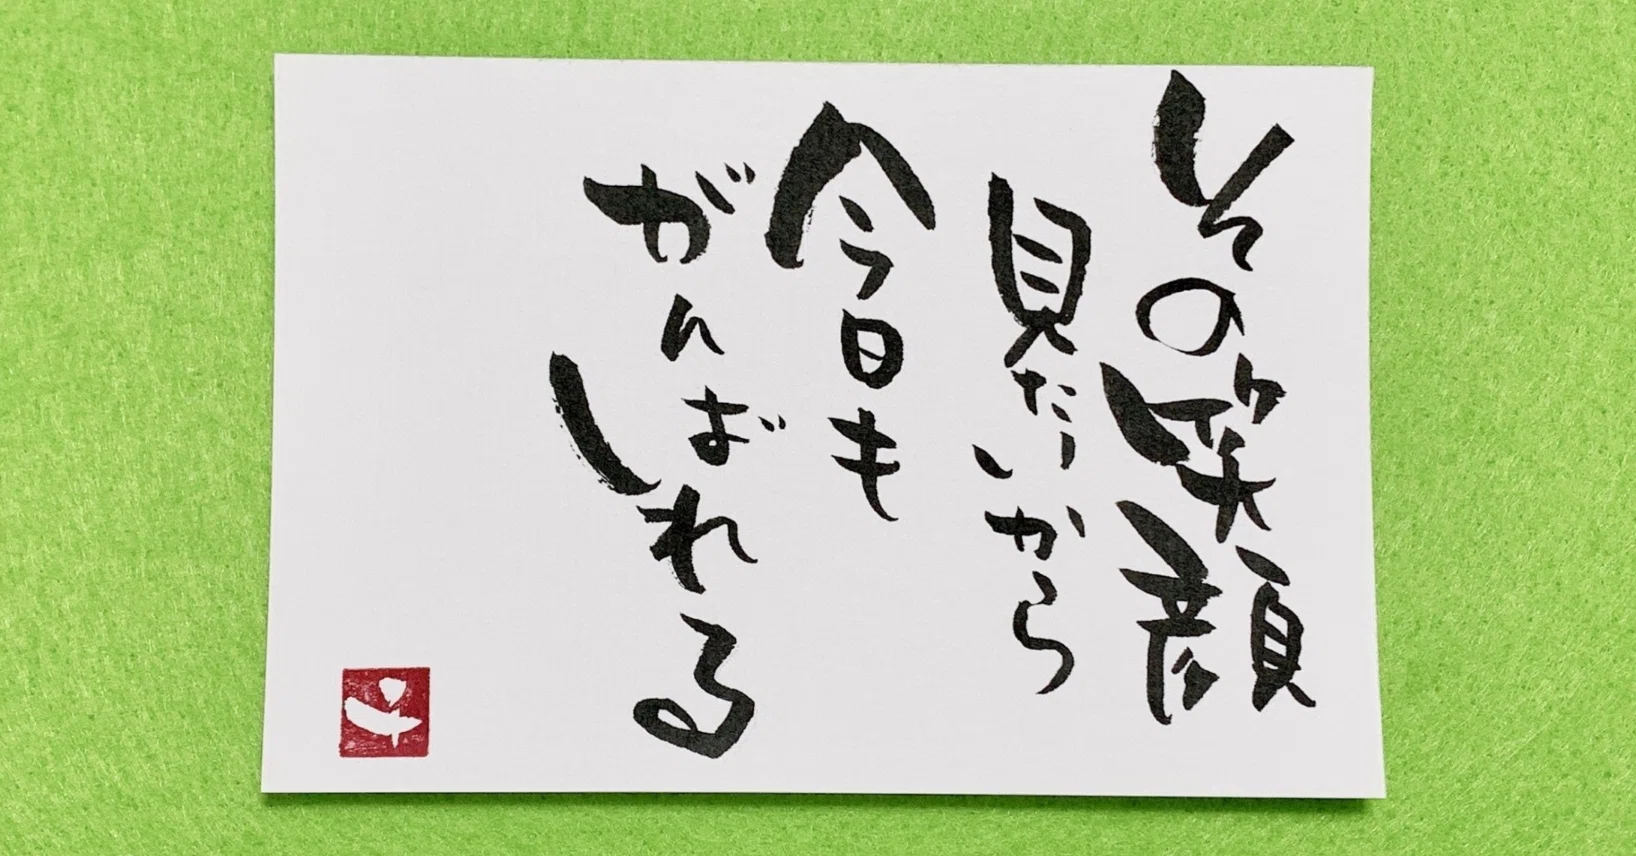 その笑顔
見たいから
今日も
がんばれる